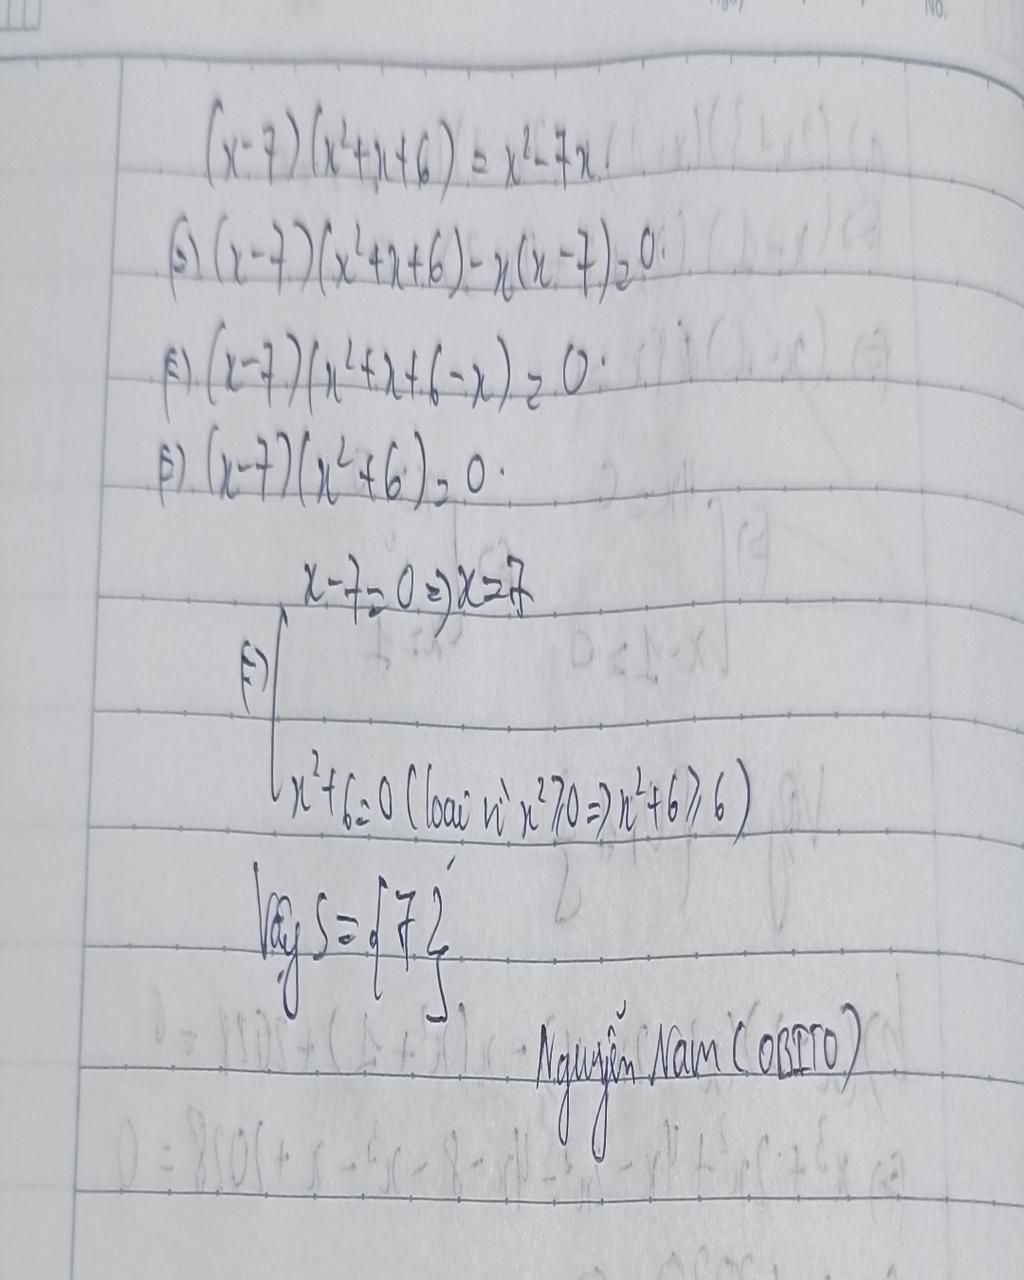 No.
(x-7)(x²+x+6) = x²-7x.
(=) (x-7)(x²+x+6)-x(x-7)=0.
(=) (x-7)(x²+x+6-x)=0.
(=) (x-7)(x²+6)=0.
x-7=0=>x=7
(=)
x²+6=0 (loại vì x²≥0=>x²+6≥6)
Vậy S={7}
Nguyễn Nam (OBITO)